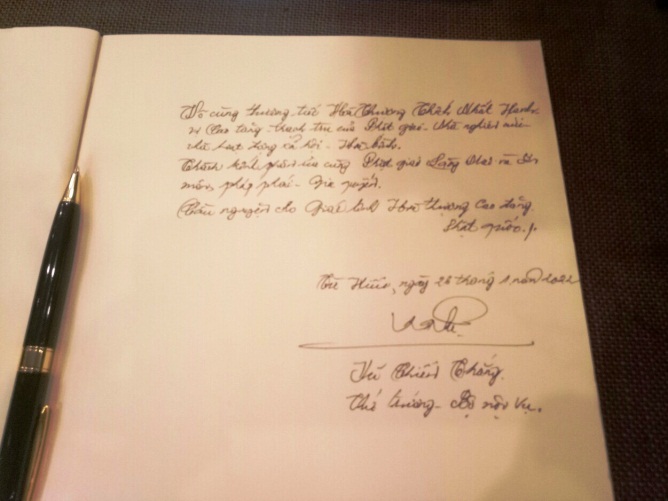 Vô cùng thương tiếc Hòa Thượng Thích Nhất Hạnh
vị Cao tăng - thạch trụ của Phật giáo - Nhà nghiên cứu
nhà hoạt động xã hội - Hòa bình.
Thành kính phân ưu cùng Phật giáo Làng Mai và Sơn
môn, pháp phái - Gia quyến.
Cầu nguyện cho Giác linh Hòa thượng Cao đăng
Phật quốc./.
Từ Hiếu, ngày 26 tháng 1 năm 2022
Vũ Chiến Thắng.
Thứ trưởng - Bộ nội vụ.